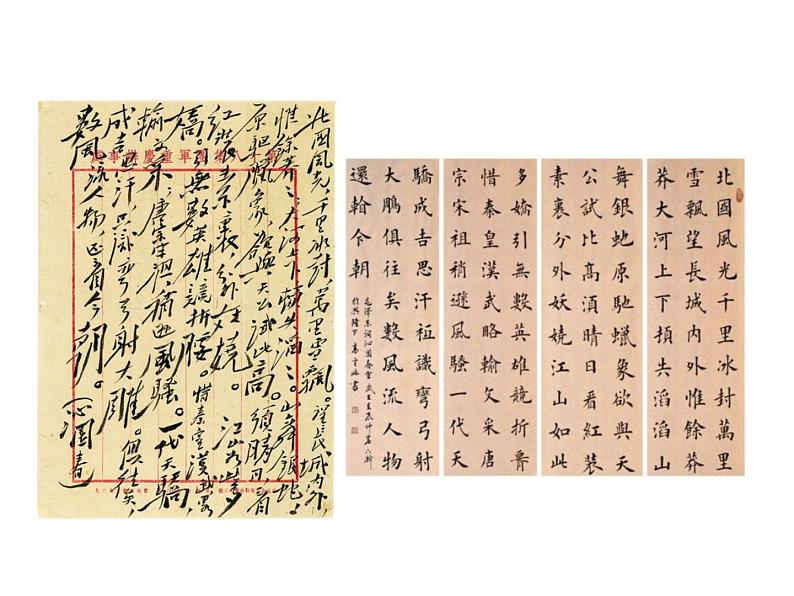 北國風光,千里冰封,萬里雪飄。望長城内外,
惟餘莽莽;大河上下,頓失滔滔。山舞銀蛇,
原馳蠟象,欲與天公試比高。須晴日,看
紅裝素裹,分外妖嬈。江山如此多
嬌,引無數英雄競折腰。惜秦皇漢武,略
輸文采;唐宗宋祖,稍遜風騷。一代天驕,
成吉思汗,只識彎弓射大雕。俱往矣,
數風流人物,還看今朝。沁園春
軍重慶辦事處
北國風光千里冰封萬里
雪飄望長城内外惟餘莽
莽大河上下頓失滔滔山
舞銀蛇原馳蠟象欲與天
公試比高須晴日看紅裝
素裹分外妖嬈江山如此
多嬌引無數英雄競折腰
惜秦皇漢武略輸文采唐
宗宋祖稍遜風騷一代天
驕成吉思汗祗識彎弓射
大鵬俱往矣數風流人物
還輪今朝
毛澤東詞沁園春雪